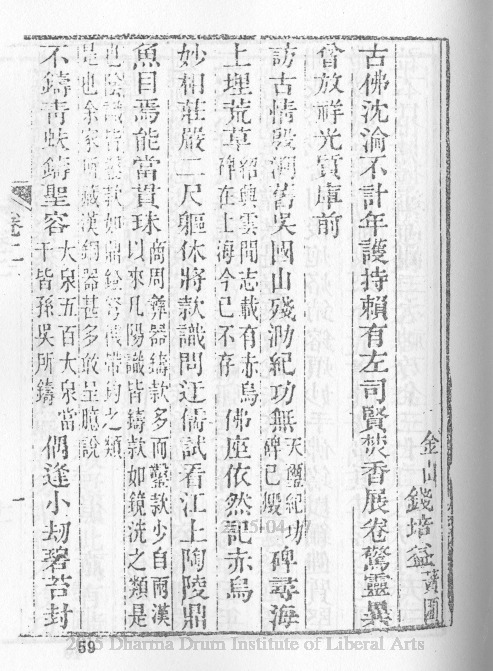 金山錢培益
古佛沈淪不計年護持賴有左司賢焚香展卷驚靈異
曾放祥光質庫前
訪古情殷溯舊吳國山殘泐紀功無天璽紀功碑已燬碑尋海
上埋荒草紹興雲間志載有赤烏碑在上海今已不存佛座依然記赤烏
妙相莊嚴二尺軀休將款識問迂儒試看江上陶陵鼎
魚目焉能當貫珠商周彝器鑄款多而鑿款少自兩漢以來凡陽識皆鑄款如鏡洗之類是
也陰識皆鑿款如鼎鐙弩機帶鉤之類是也余家所藏漢銅器甚多敢呈臆說
不鑄青蚨鑄聖容大泉五百大泉當千皆孫吳所鑄偶逢小劫碧苔封
卷二
一
59
Dharma Drum Institute of Liberal Arts